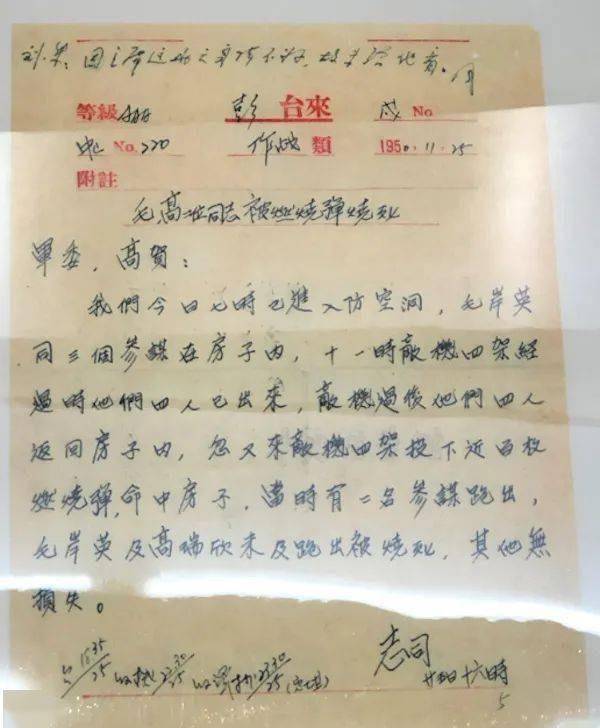 等級AAAA 彭台來 戍 No.
No. 220 作战類 1950.11.25
附註
毛高二同志被燃燒彈燒死
軍委，高賀：
我們今日七時已進入防空洞，毛岸英
同三個參謀在房子內，十一時敵機四架經
過時他們四人已出來，敵機過後他們四人
返回房子內，忽又來敵機四架投下近百枚
燃燒彈，命中房子，當時有二名參謀跑出，
毛岸英及高瑞欣未及跑出被燒死，其他無
損失。
志司
十六時